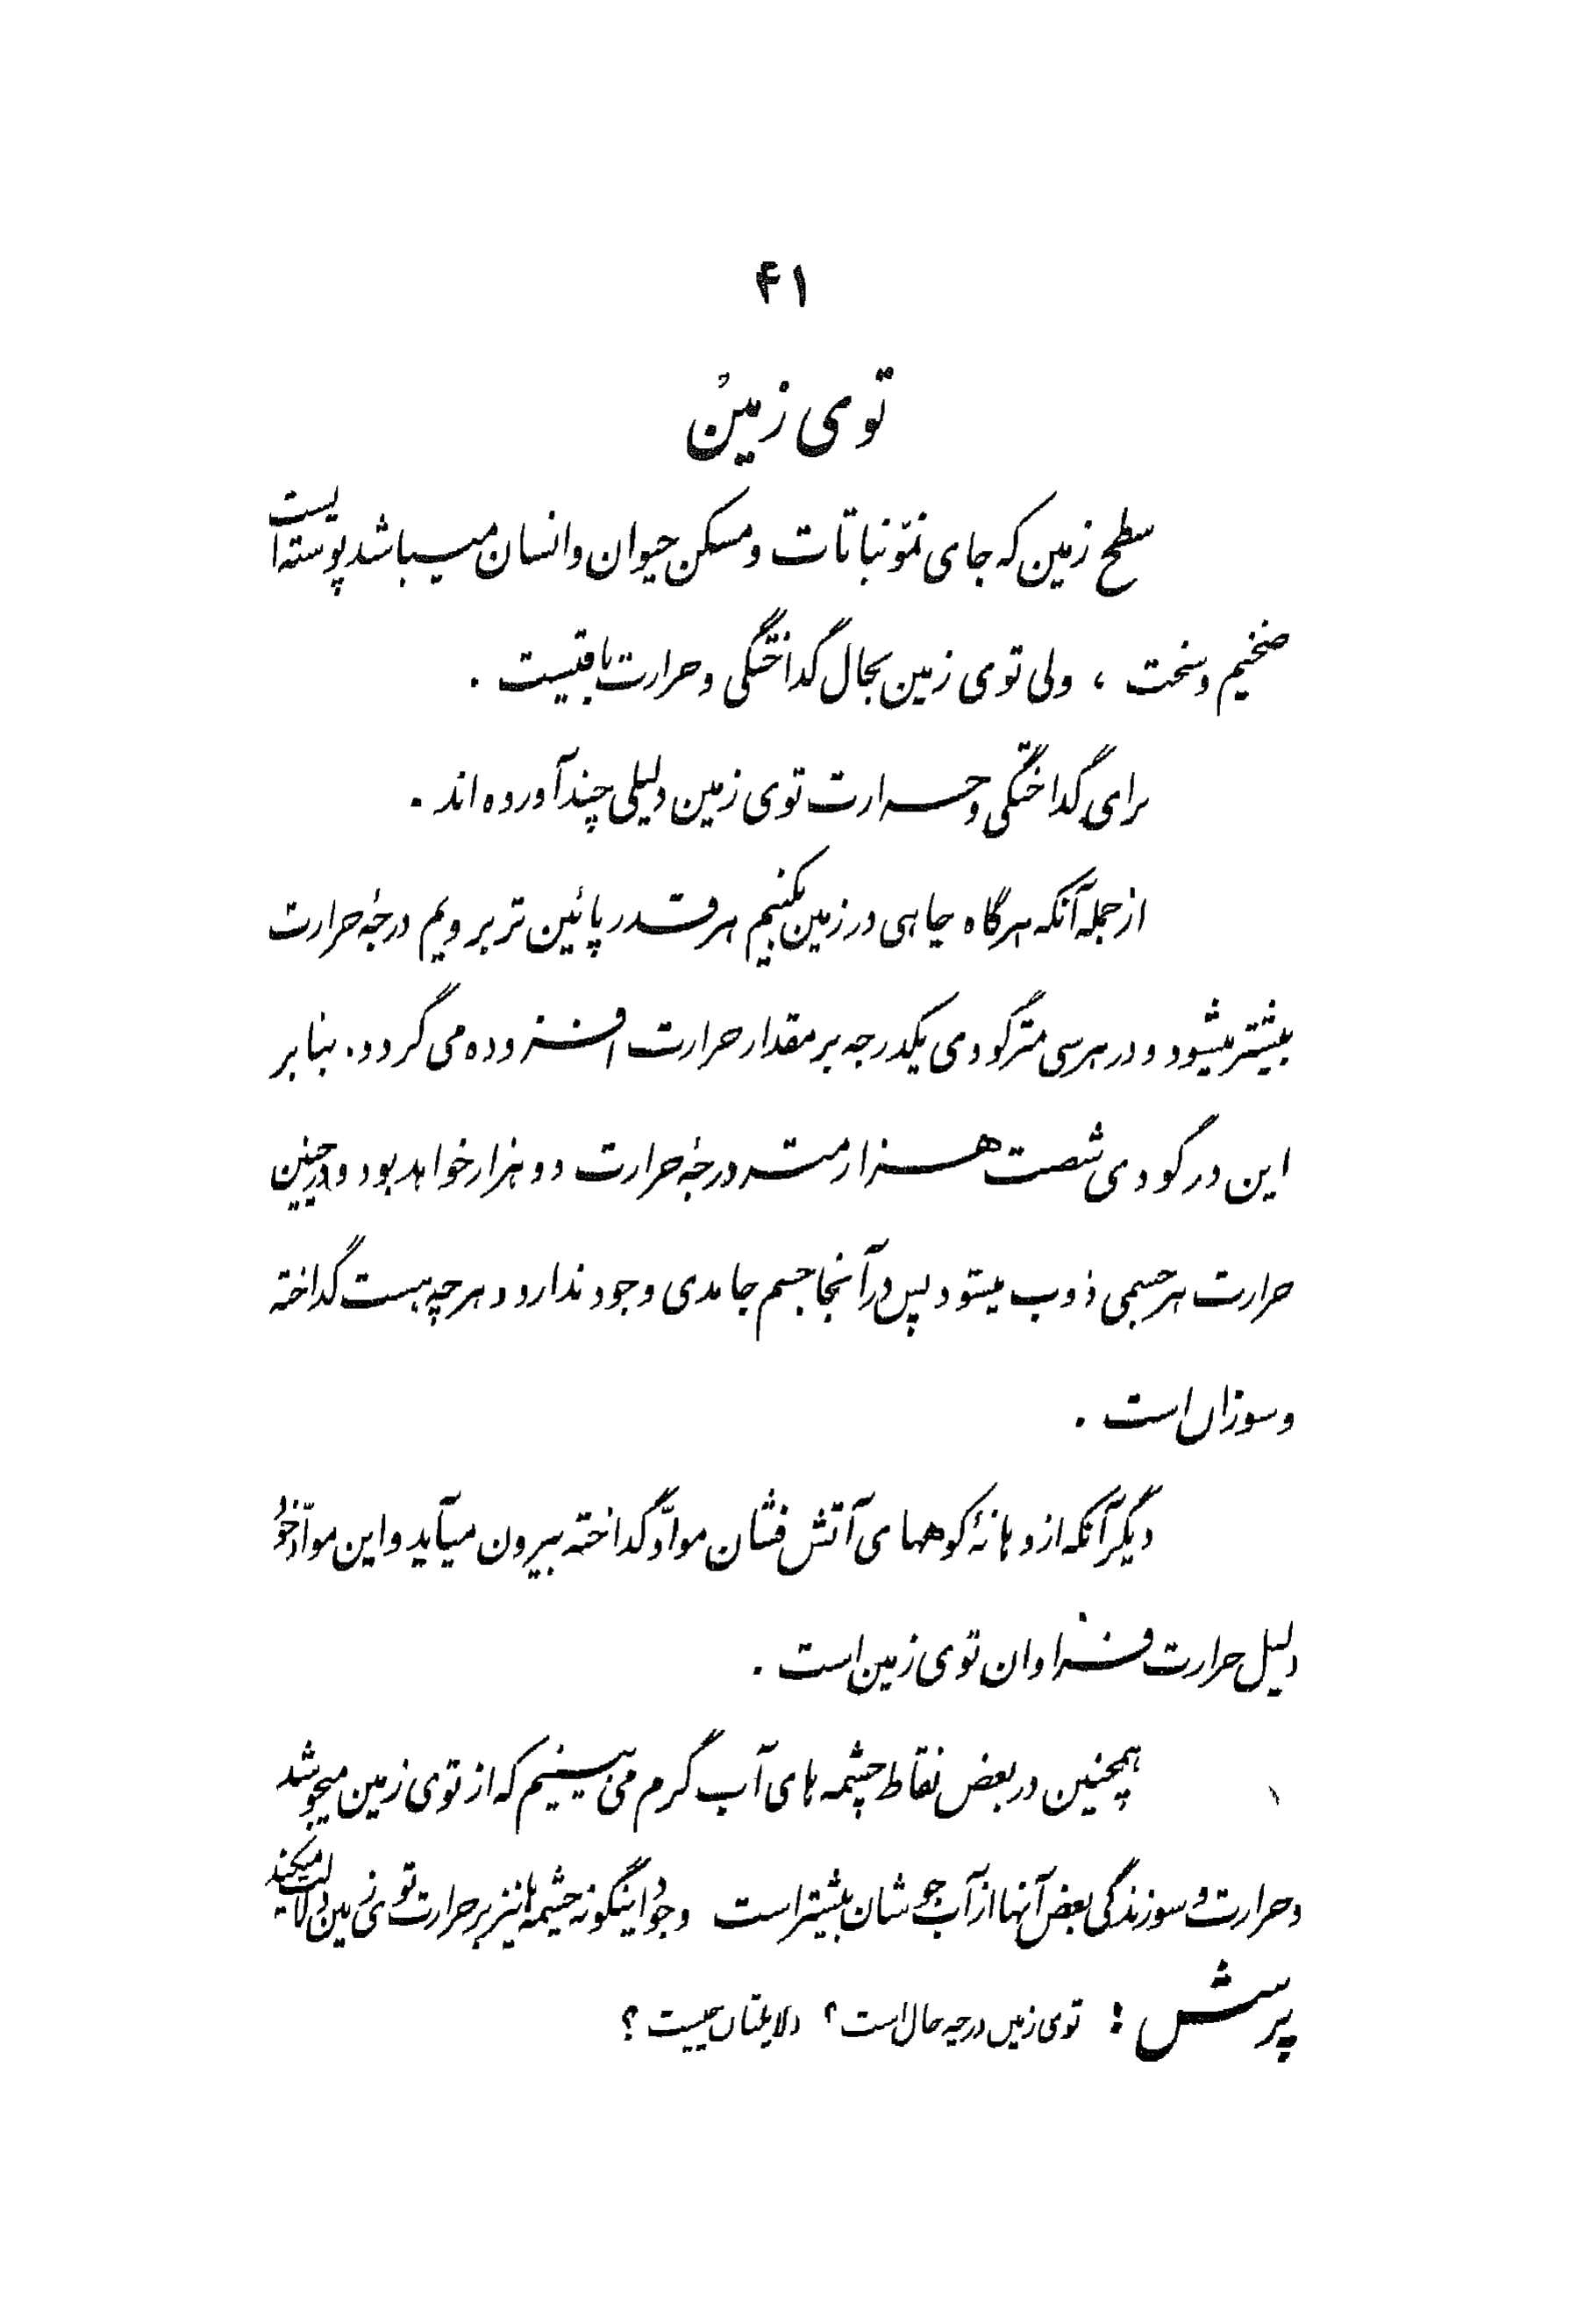 ۴۱
توی زمین
سطح زمین که جای نموّ نباتات و مسکن حیوان و انسان میباشد پوسته‌ایست
ضخیم و سخت ، ولی توی زمین بحال گداختگی و حرارت باقیست .
برای گداختگی و حرارت توی زمین دلیلی چند آورده اند .
از جمله آنکه هرگاه چاهی در زمین بکنیم هر قدر پائین تر برویم درجهٔ حرارت
بیشتر میشود و در هر سی متر گودی یکدرجه بر مقدار حرارت افزوده می گردد . بنابر
این در گودی شصت هزار متر درجهٔ حرارت دو هزار خواهد بود و در چنین
حرارت هر جسمی ذوب میشود پس در آنجا جسم جامدی وجود ندارد و هر چه هست گداخته
و سوزان است .
دیگر آنکه از دهانهٔ کوههای آتش فشان موادّ گداخته بیرون میآید و این موادّ خود
دلیل حرارت فراوان توی زمین است .
همچنین در بعض نقاط چشمه های آب گرم می بینیم که از توی زمین میجوشد
و حرارت و سوزندگی بعض آنها از آب جوشان بیشتر است وجود اینگونه چشمه ها نیز بر حرارت توی زمین دلالت میکند
پرسش : توی زمین در چه حال است ؟ دلایلتان چیست ؟